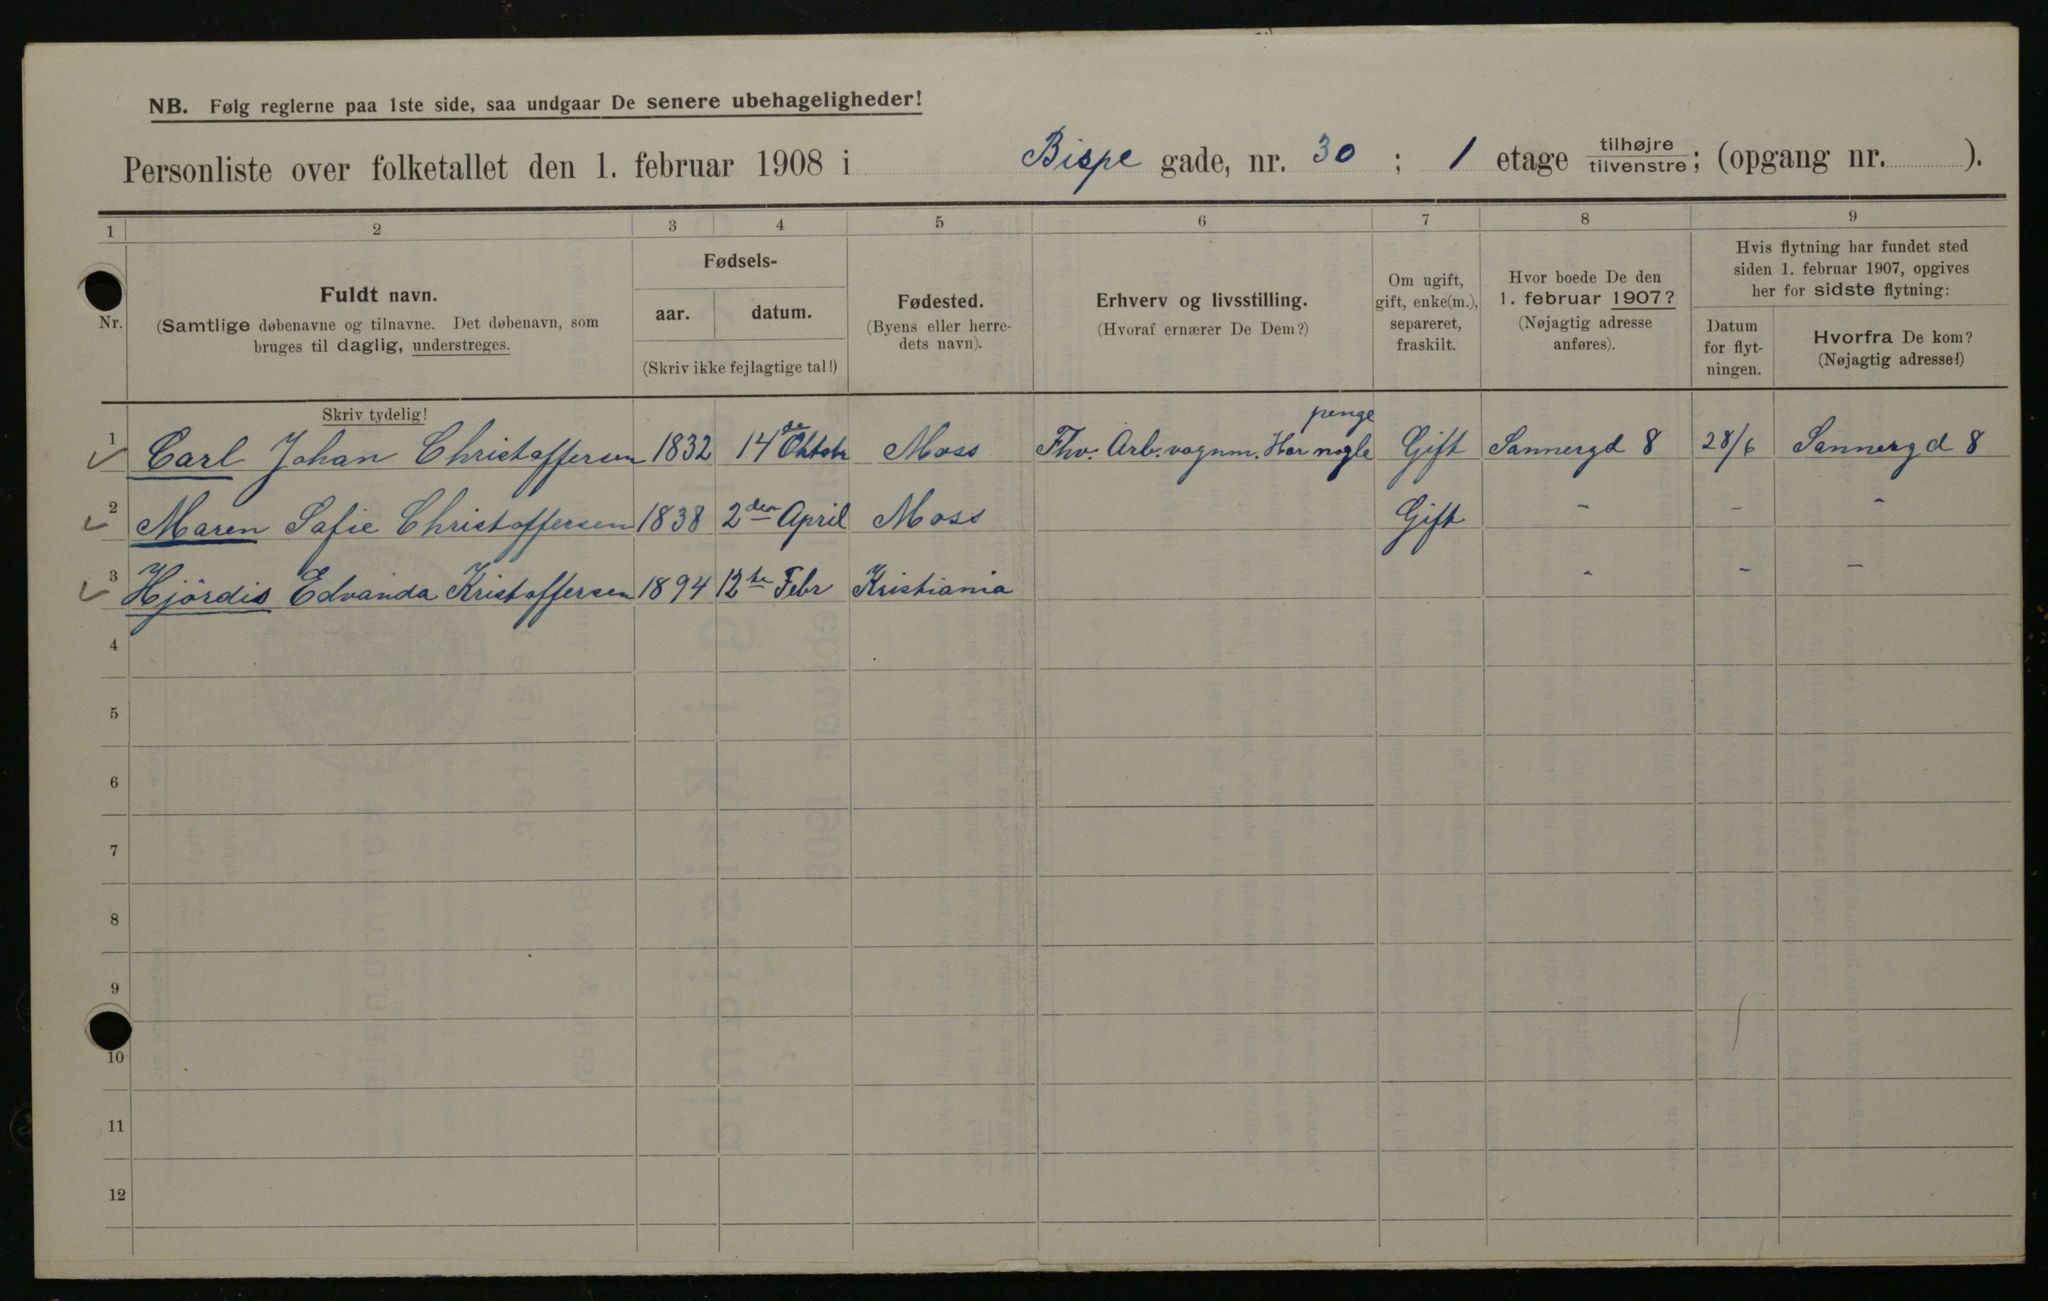 NB. Følg reglerne paa 1ste side, saa undgaar De senere ubehageligheder!
Personliste over folketallet den 1. februar 1908 i Bispe gade, nr. 30 ; 1 etage tilhøjre/tilvenstre; (opgang nr. ).
1 2 3 4 5 6 7 8 9
Nr.
Fuldt navn.
(Samtlige døbenavne og tilnavne. Det døbenavn, som
bruges til daglig, understreges.
Skriv tydelig!
Fødsels-
aar. datum.
(Skriv ikke fejlagtige tal!)
Fødested.
(Byens eller herre-
dets navn).
Erhverv og livsstilling.
(Hvoraf ernærer De Dem?)
Om ugift,
gift, enke(m.),
separeret,
fraskilt.
Hvor boede De den
1. februar 1907?
(Nøjagtig adresse
anføres).
Hvis flytning har fundet sted
siden 1. februar 1907, opgives
her for sidste flytning:
Datum
for flyt-
ningen.
Hvorfra De kom?
(Nøjagtig adresse!)
penge
1 Carl Johan Christoffersen 1832 14de Oktobr Moss Fhv. Arb. vognm. Har nogle Gift Sannergd 8 28/6 Sannergd 8
2 Maren Safie Christoffersen 1838 2den April Moss Gift " - "
3 Hjördis Edvanda Kristoffersen 1894 12te Febr Kristiania " - -
4
5
6
7
8
9
10
11
12